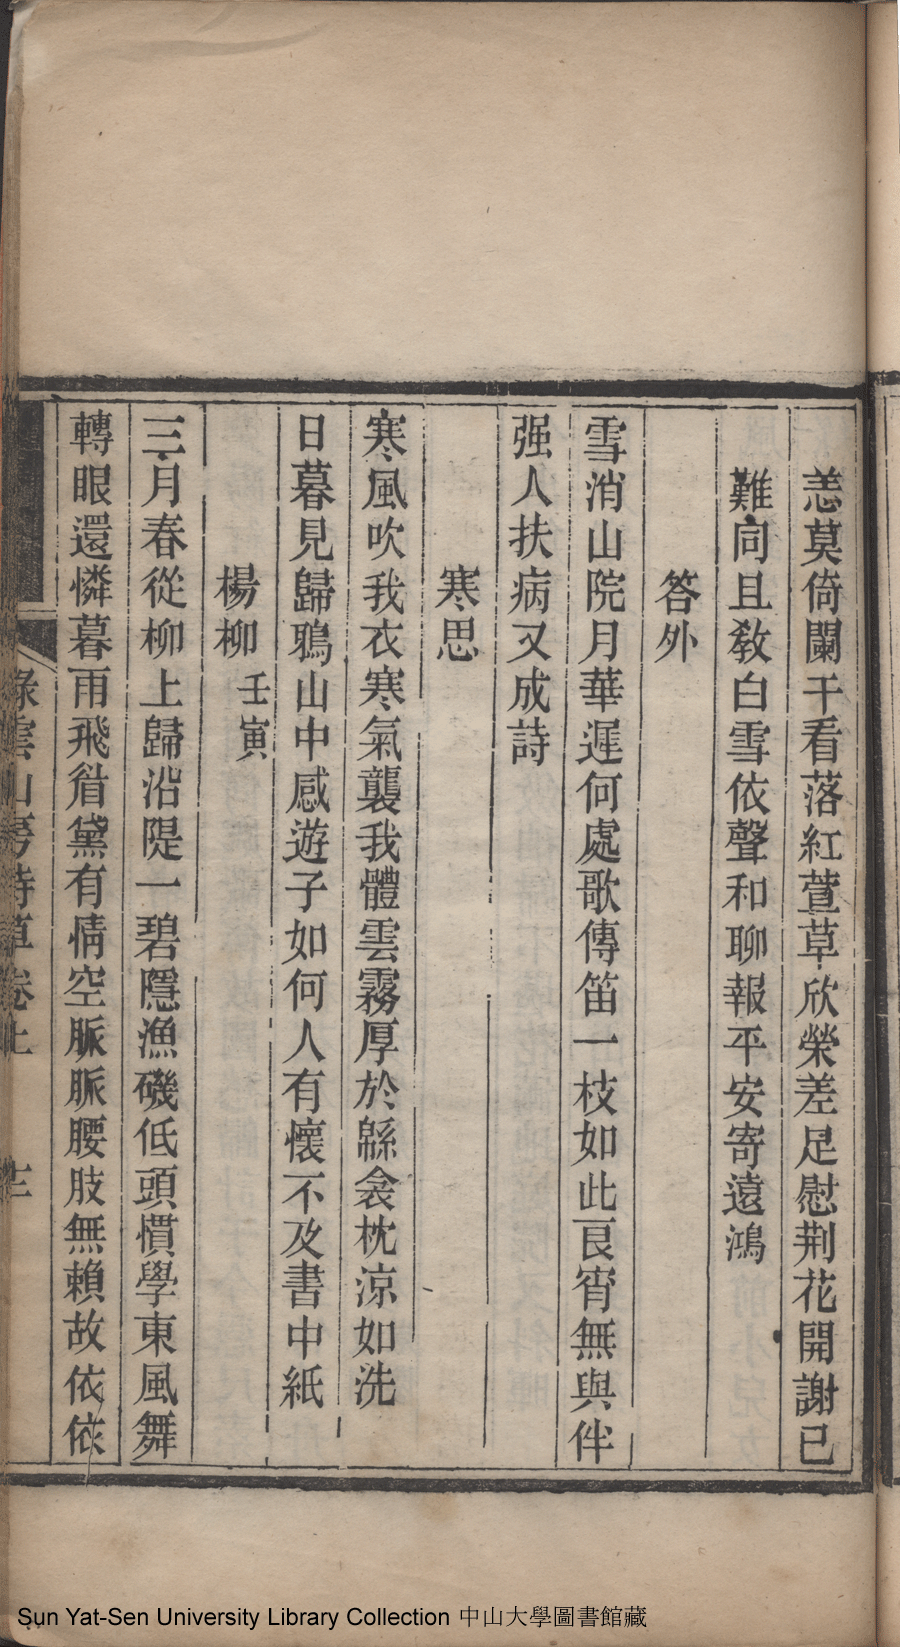 恙莫倚闌干看落紅萱草欣榮差足慰荆花開謝已
難同且敎白雪依聲和聊報平安寄遠鴻
答外
雪消山院月華遲何處歌傳笛一枝如此良宵無與伴
强人扶病又成詩
寒思
寒風吹我衣寒氣襲我體雲霧厚於緜衾枕涼如洗
日暮見歸鴉山中感遊子如何人有懷不及書中紙
楊柳 壬寅
三月春從柳上歸沿隄一碧隱漁磯低頭慣學東風舞
轉眼還憐暮雨飛眉黛有情空脈脈腰肢無賴故依依
綠雲山房詩草卷上
Sun Yat-Sen University Library Collection 中山大學圖書館藏